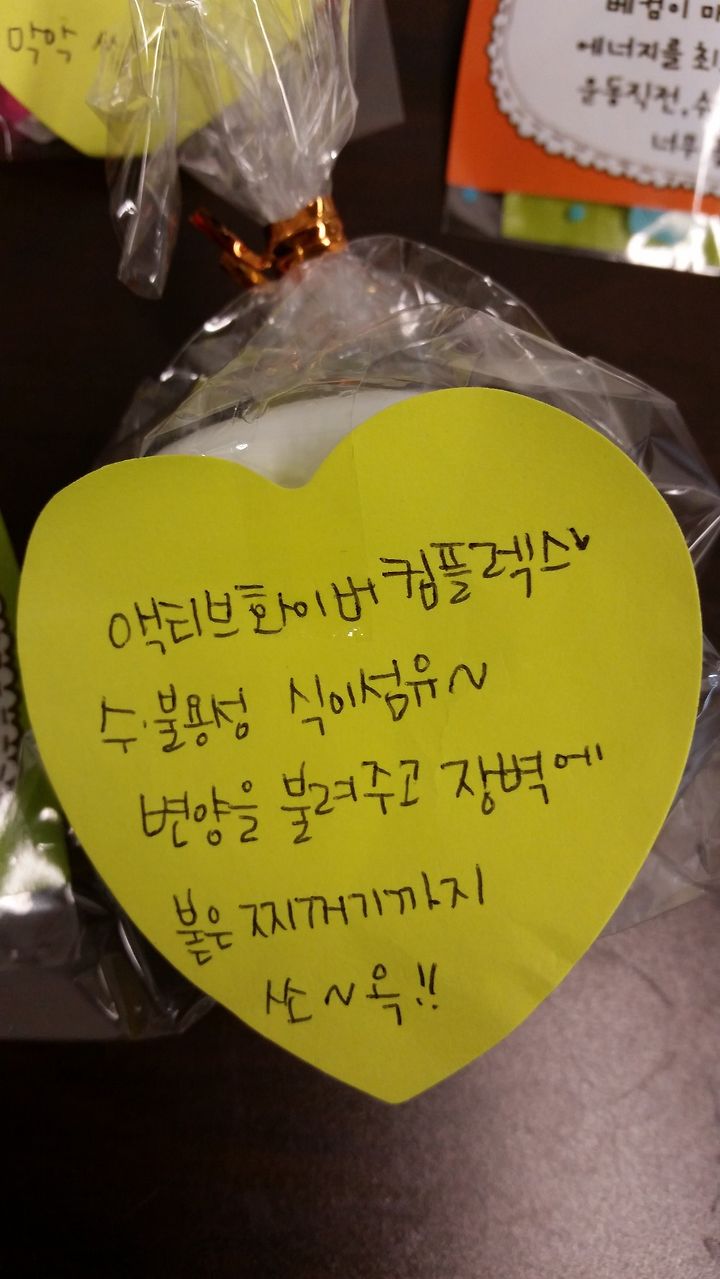 막악
베컴이
에너지를 최
운동직전, 수
너무
액티브화이버컴플렉스♥
수·불용성 식이섬유~
변양을 불려주고 장벽에
붙은 찌꺼기까지
쏘~옥!!